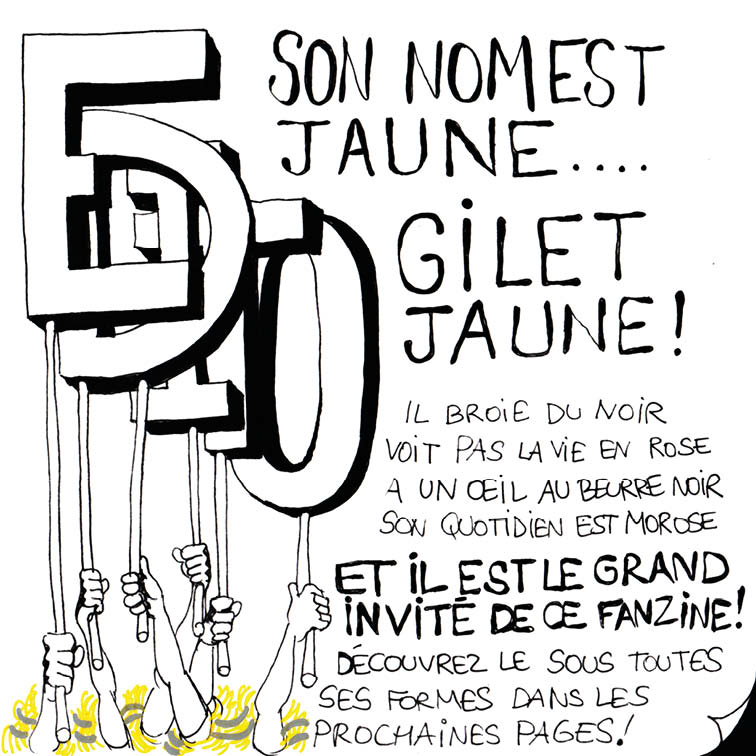 EDITO
SON NOM EST
JAUNE....
GILET
JAUNE!
IL BROIE DU NOIR
VOIT PAS LA VIE EN ROSE
A UN ŒIL AU BEURRE NOIR
SON QUOTIDIEN EST MOROSE
ET IL EST LE GRAND
INVITÉ DE CE FANZINE!
DÉCOUVREZ LE SOUS TOUTES
SES FORMES DANS LES
PROCHAINES PAGES!